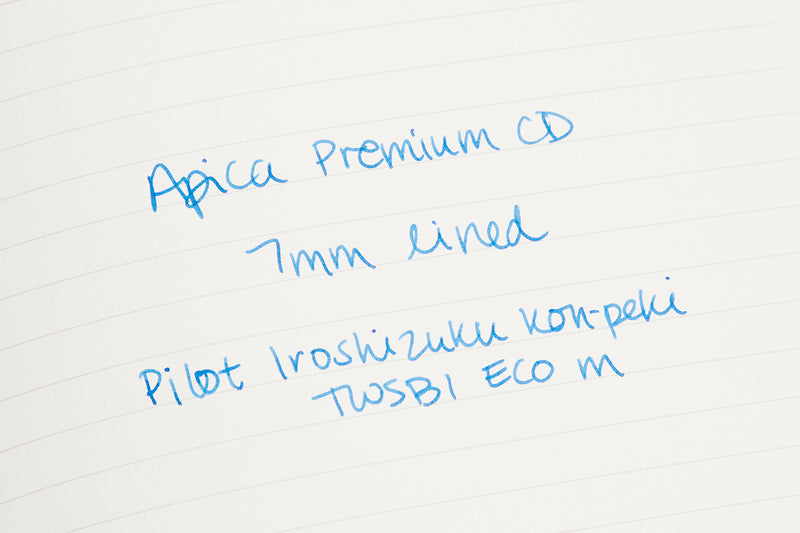 Apica Premium CD
7mm lined
Pilot Iroshizuku kon-peki
TWSBI ECO M